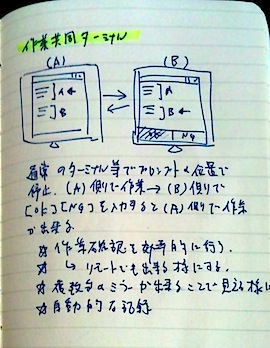 作業共同ターミナル
(A) (B)
A A
B B
NG
通常のターミナル等でプロンプトの位置で
停止. (A)側で作業→(B)側で
[OK][NG]を入力すると(A)側で作業
が出来る
☆ 作業確認を効率的に行う.
☆ ↳ リモートでも出来る様にする.
☆ 複数名のミラーが出来ることで見える様に
☆ 自動的な記録